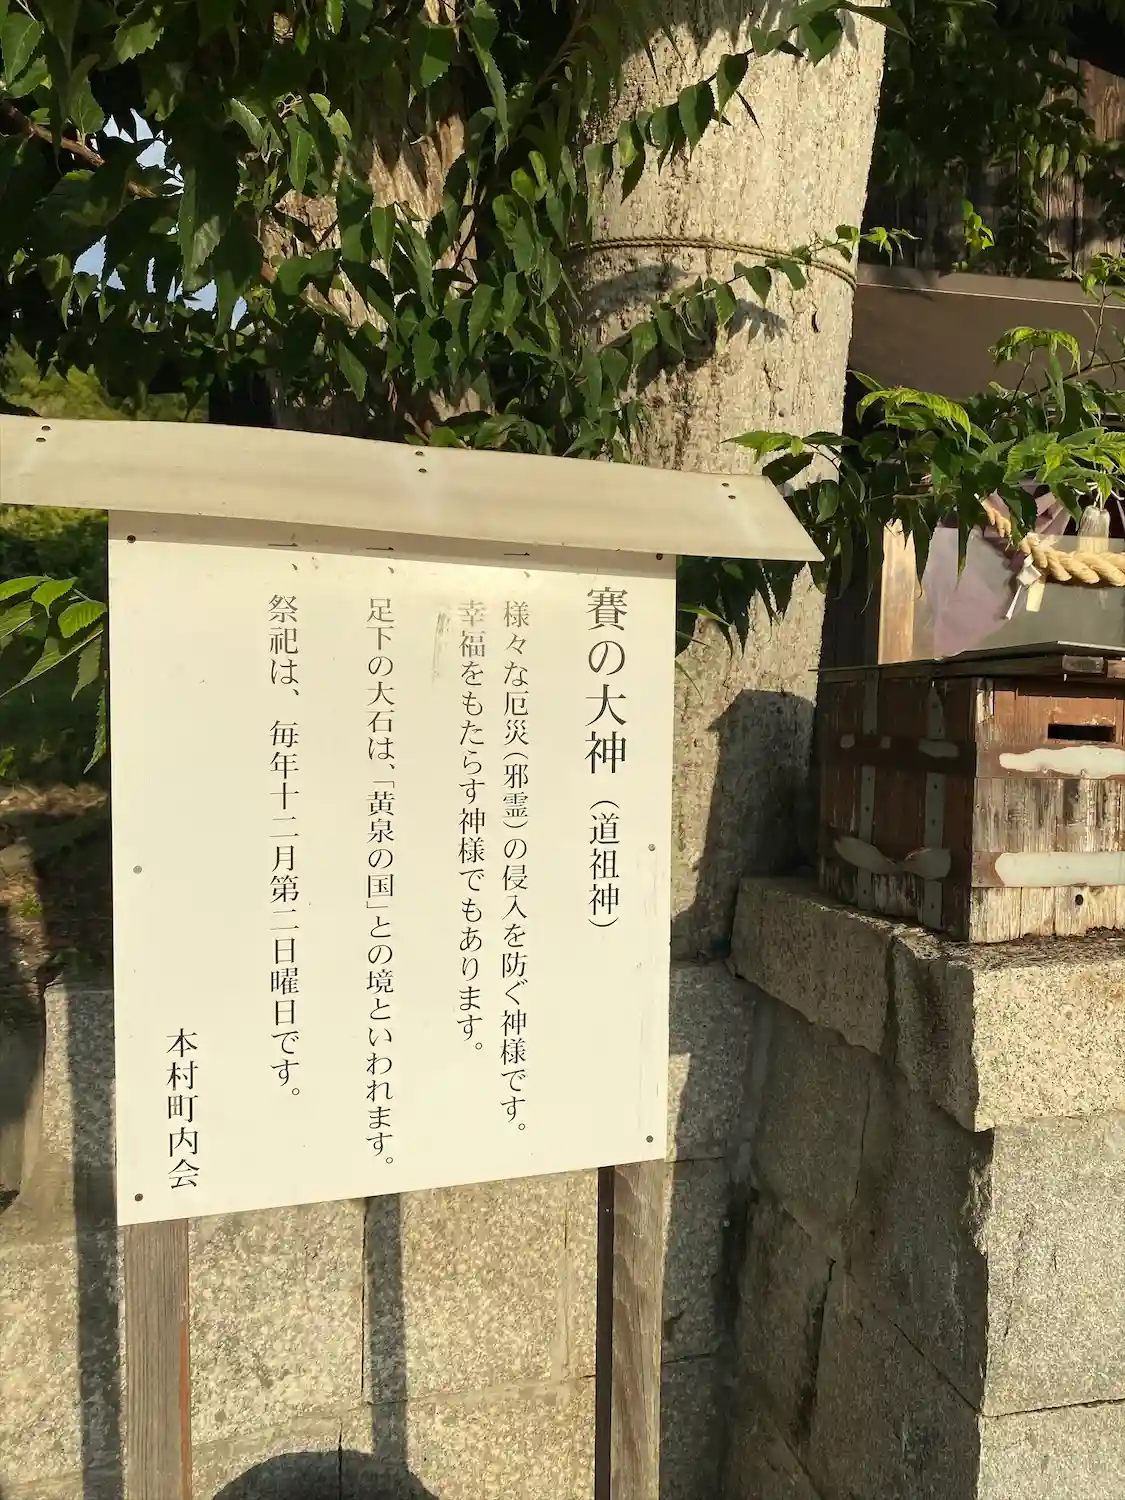 賽の大神（道祖神）
一、様々な厄災（邪霊）の侵入を防ぐ神様です。
幸福をもたらす神様でもあります。
一、足下の大石は、「黄泉の国」との境といわれます。
一、祭祀は、毎年十二月第二日曜日です。
本村町内会